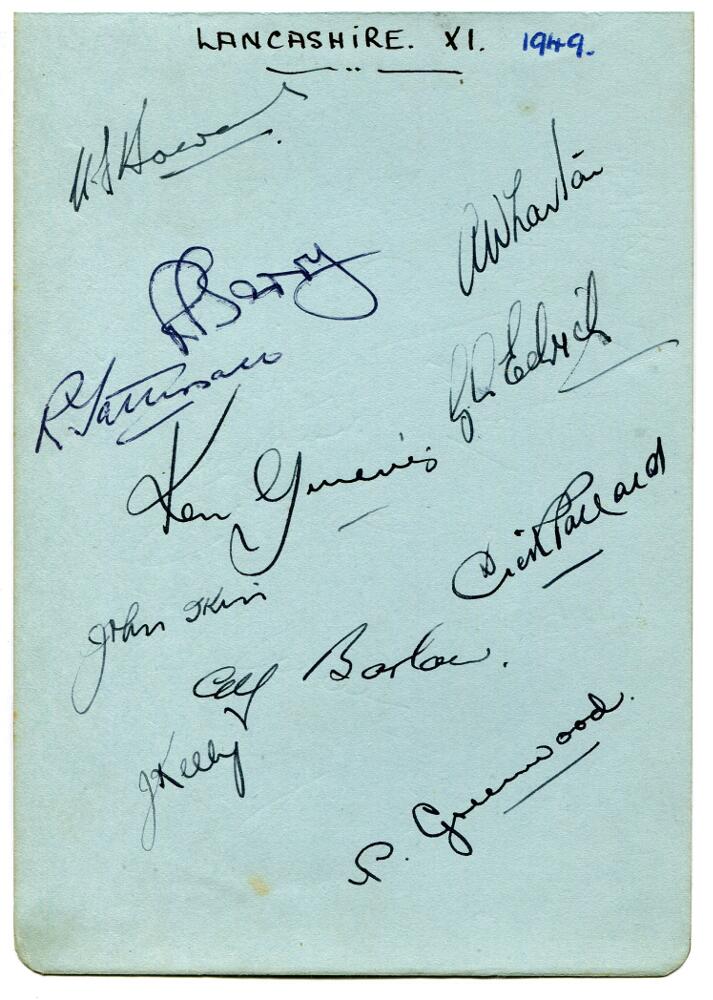 LANCASHIRE. XI. 1949.
N D Howard.
A Wharton
R Berry
G A Edrich
R. Tattersall
Ken Grieves
Dick Pollard
John Ikin
Alf Barlow.
J Kelly
P. Greenwood.